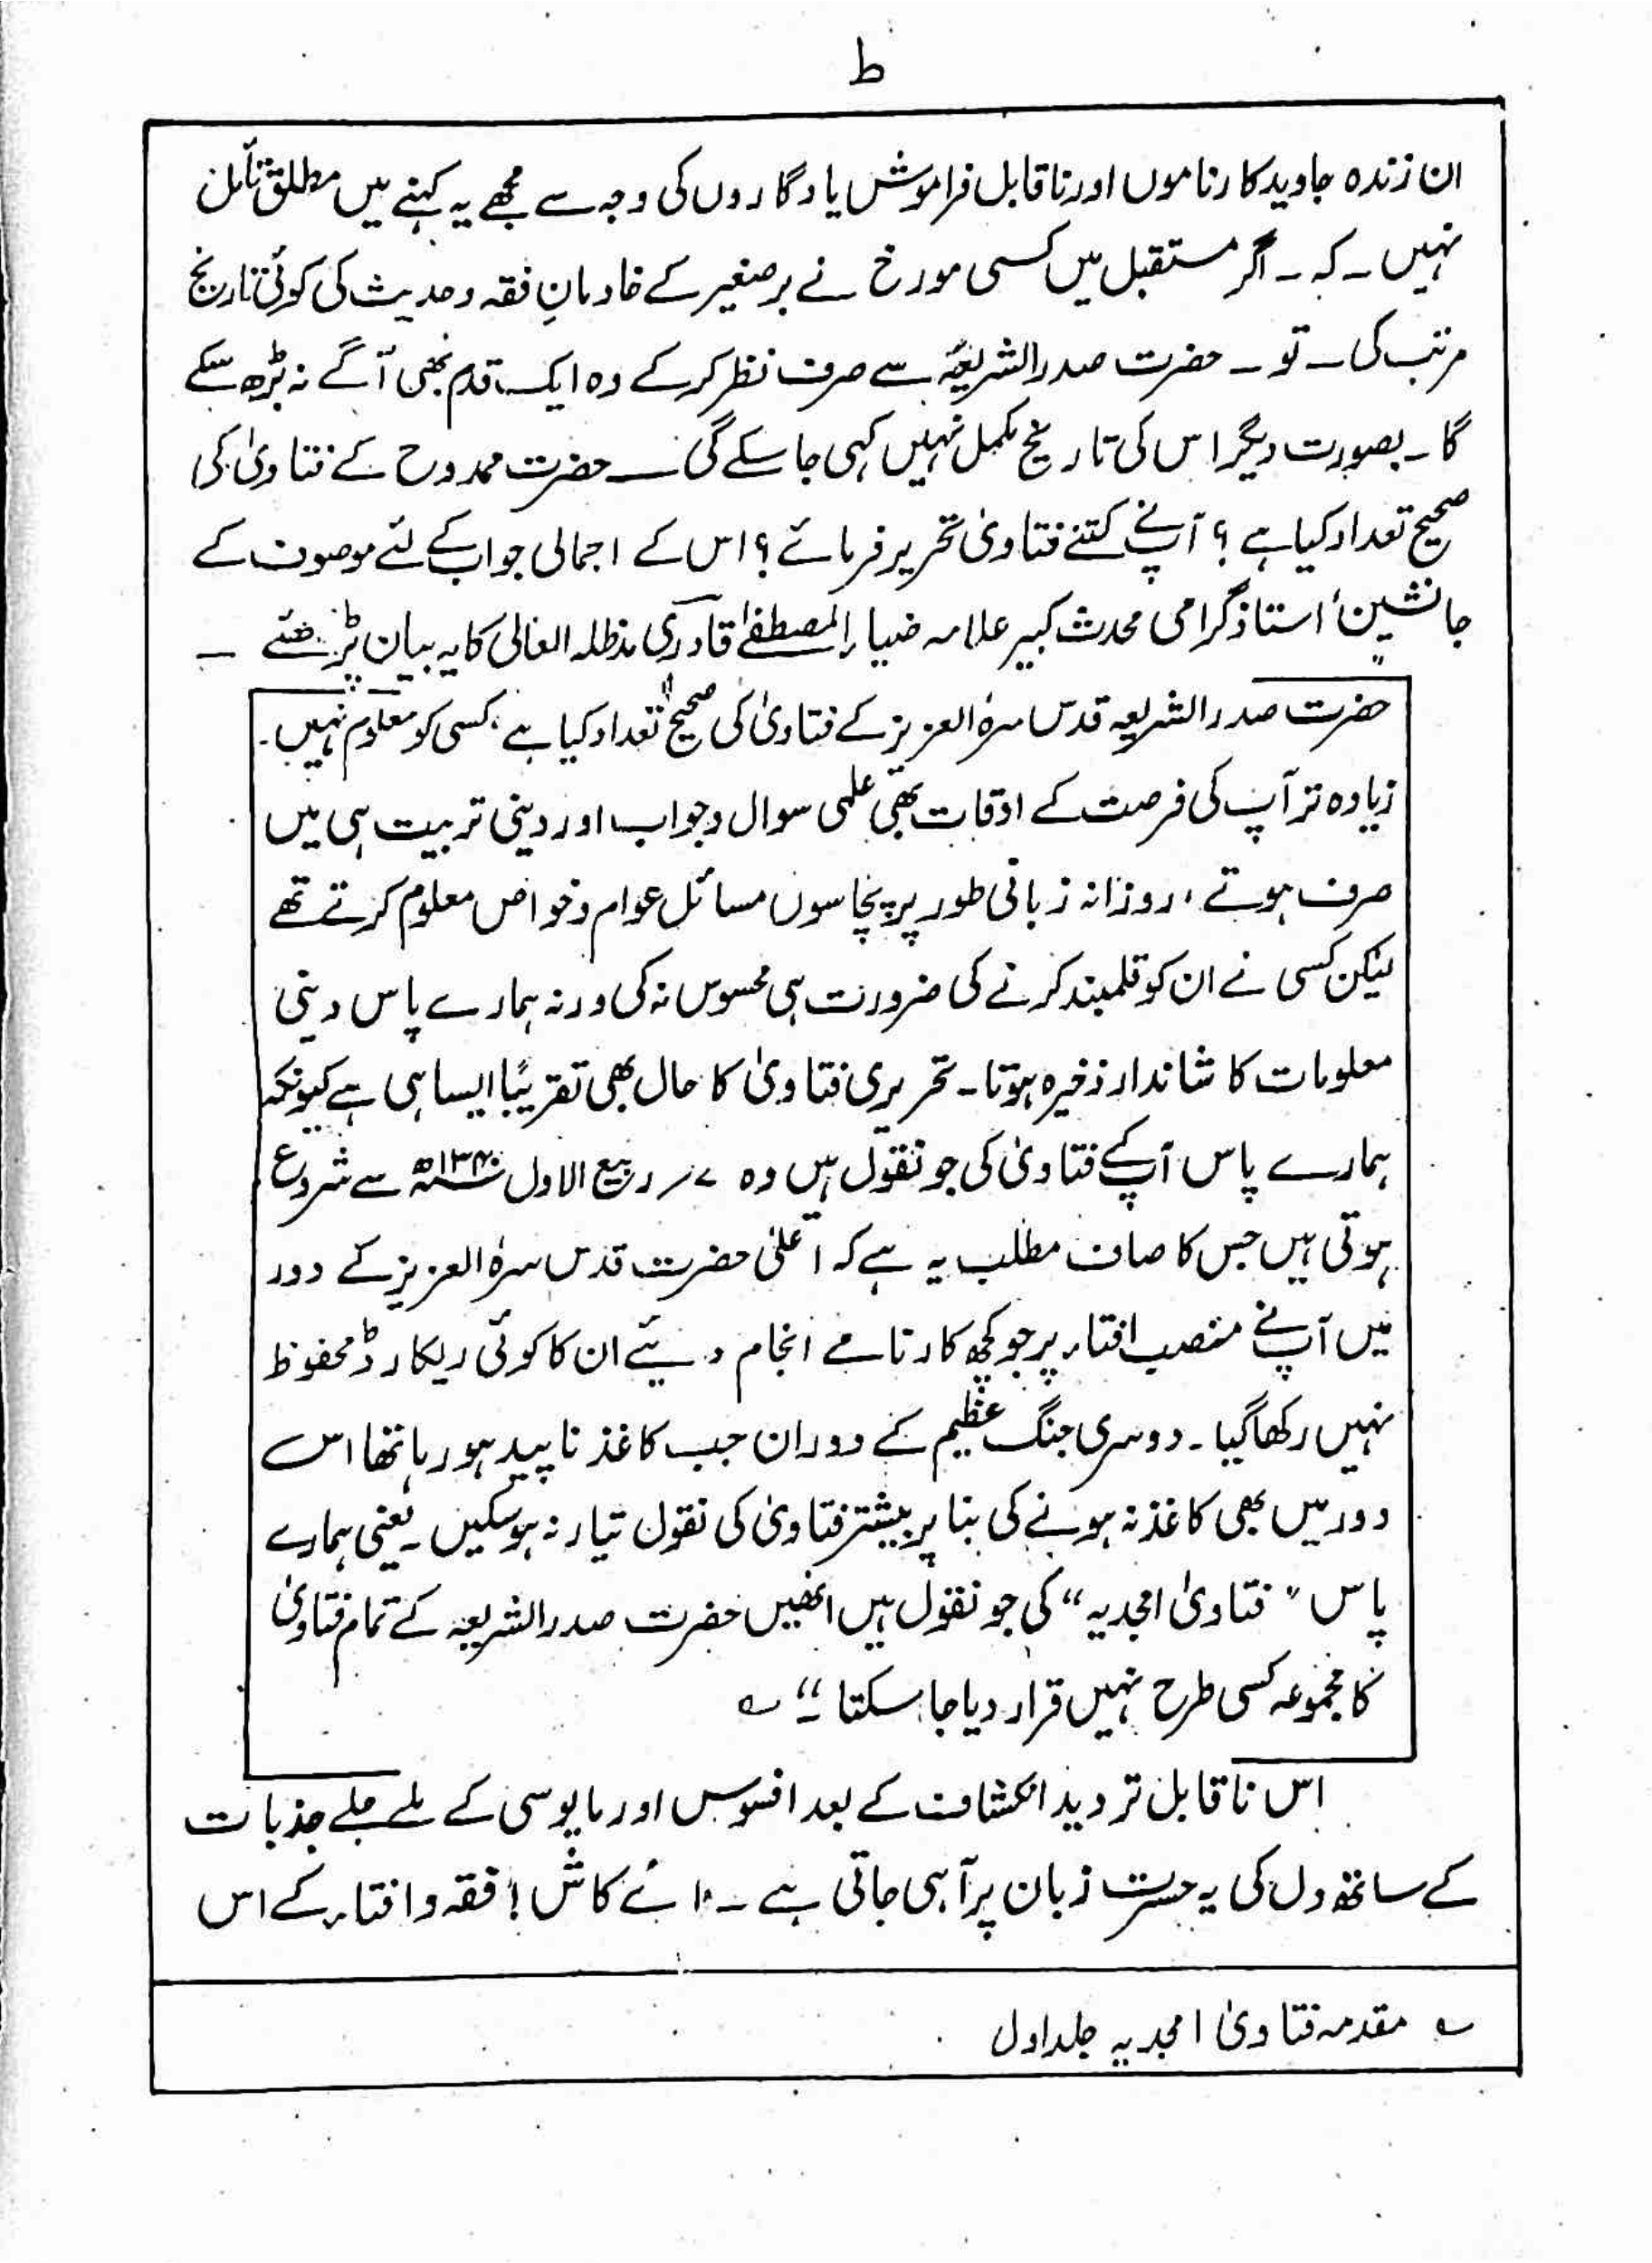 ط
ان زندہ جاوید کارناموں اور ناقابل فراموش یادگاروں کی وجہ سے مجھے یہ کہنے میں مطلق تأمل
نہیں ۔ کہ ۔ اگر مستقبل میں کسی مورخ نے برصغیر کے خادمانِ فقہ وحدیث کی کوئی تاریخ
مرتب کی ۔ تو ۔ حضرت صدرالشریعہؒ سے صرف نظر کر کے وہ ایک قدم بھی آگے نہ بڑھ سکے
گا ۔ بصورت دیگر اس کی تاریخ مکمل نہیں کہی جاسکے گی ۔ حضرت ممدوح کے فتاویٰ کی
صحیح تعداد کیا ہے ؟ آپ نے کتنے فتاویٰ تحریر فرمائے ؟ اس کے اجمالی جواب کے لئے موصوف کے
جانشین، استاذ گرامی محدث کبیر علامہ ضیاء المصطفےٰ قادری مدظلہ العالی کا یہ بیان پڑھئے ۔
"حضرت صدرالشریعہ قدس سرہٗ العزیز کے فتاویٰ کی صحیح تعداد کیا ہے، کسی کو معلوم نہیں۔
زیادہ تر آپ کی فرصت کے اوقات بھی علمی سوال وجواب اور دینی تربیت ہی میں
صرف ہوتے، روزانہ زبانی طور پر پچاسوں مسائل عوام وخواص معلوم کرتے تھے
لیکن کسی نے ان کو قلمبند کرنے کی ضرورت ہی محسوس نہ کی ورنہ ہمارے پاس دینی
معلومات کا شاندار ذخیرہ ہوتا۔ تحریری فتاویٰ کا حال بھی تقریبًا ایسا ہی ہے کیونکہ
ہمارے پاس آپ کے فتاویٰ کی جو نقول ہیں وہ ۷؍ ربیع الاول ۱۳۴۰ھ سے شروع
ہوتی ہیں جس کا صاف مطلب یہ ہے کہ اعلیٰ حضرت قدس سرہٗ العزیز کے دور
میں آپ نے منصب افتاء پر جو کچھ کارنامے انجام دیئے ان کا کوئی ریکارڈ محفوظ
نہیں رکھا گیا ۔ دوسری جنگ عظیم کے دوران جب کاغذ ناپید ہورہا تھا اس
دور میں بھی کاغذ نہ ہونے کی بنا پر بیشتر فتاویٰ کی نقول تیار نہ ہوسکیں ۔ یعنی ہمارے
پاس "فتاویٰ امجدیہ" کی جو نقول ہیں انھیں حضرت صدرالشریعہ کے تمام فتاویٰ
کا مجموعہ کسی طرح نہیں قرار دیا جاسکتا ۔" ؎
اس ناقابل تردید انکشاف کے بعد افسوس اور مایوسی کے ملے جلے جذبات
کے ساتھ دل کی یہ حسرت زبان پر آہی جاتی ہے ۔ اے کاش ! فقہ وافتاء کے اس
؎ مقدمہ فتاویٰ امجدیہ جلد اول